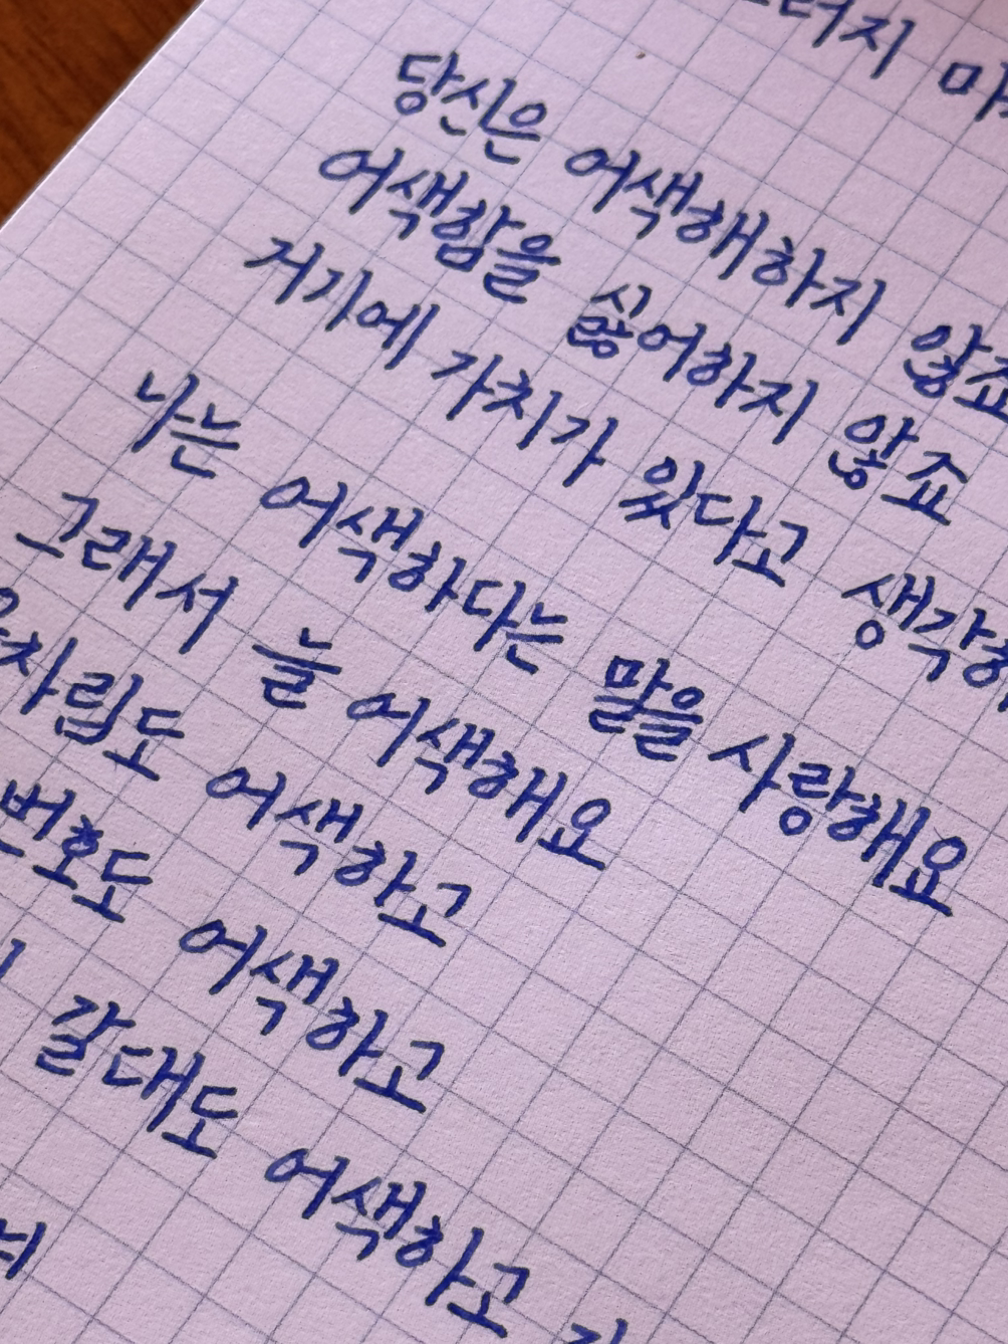 당신은 어색해하지 않죠
어색함을 싫어하지 않죠
거기에 가치가 있다고
나는 어색하다는 말을 사랑해요
그래서 늘 어색해요
어색하고
번호도 어색하고
갈대도 어색하고